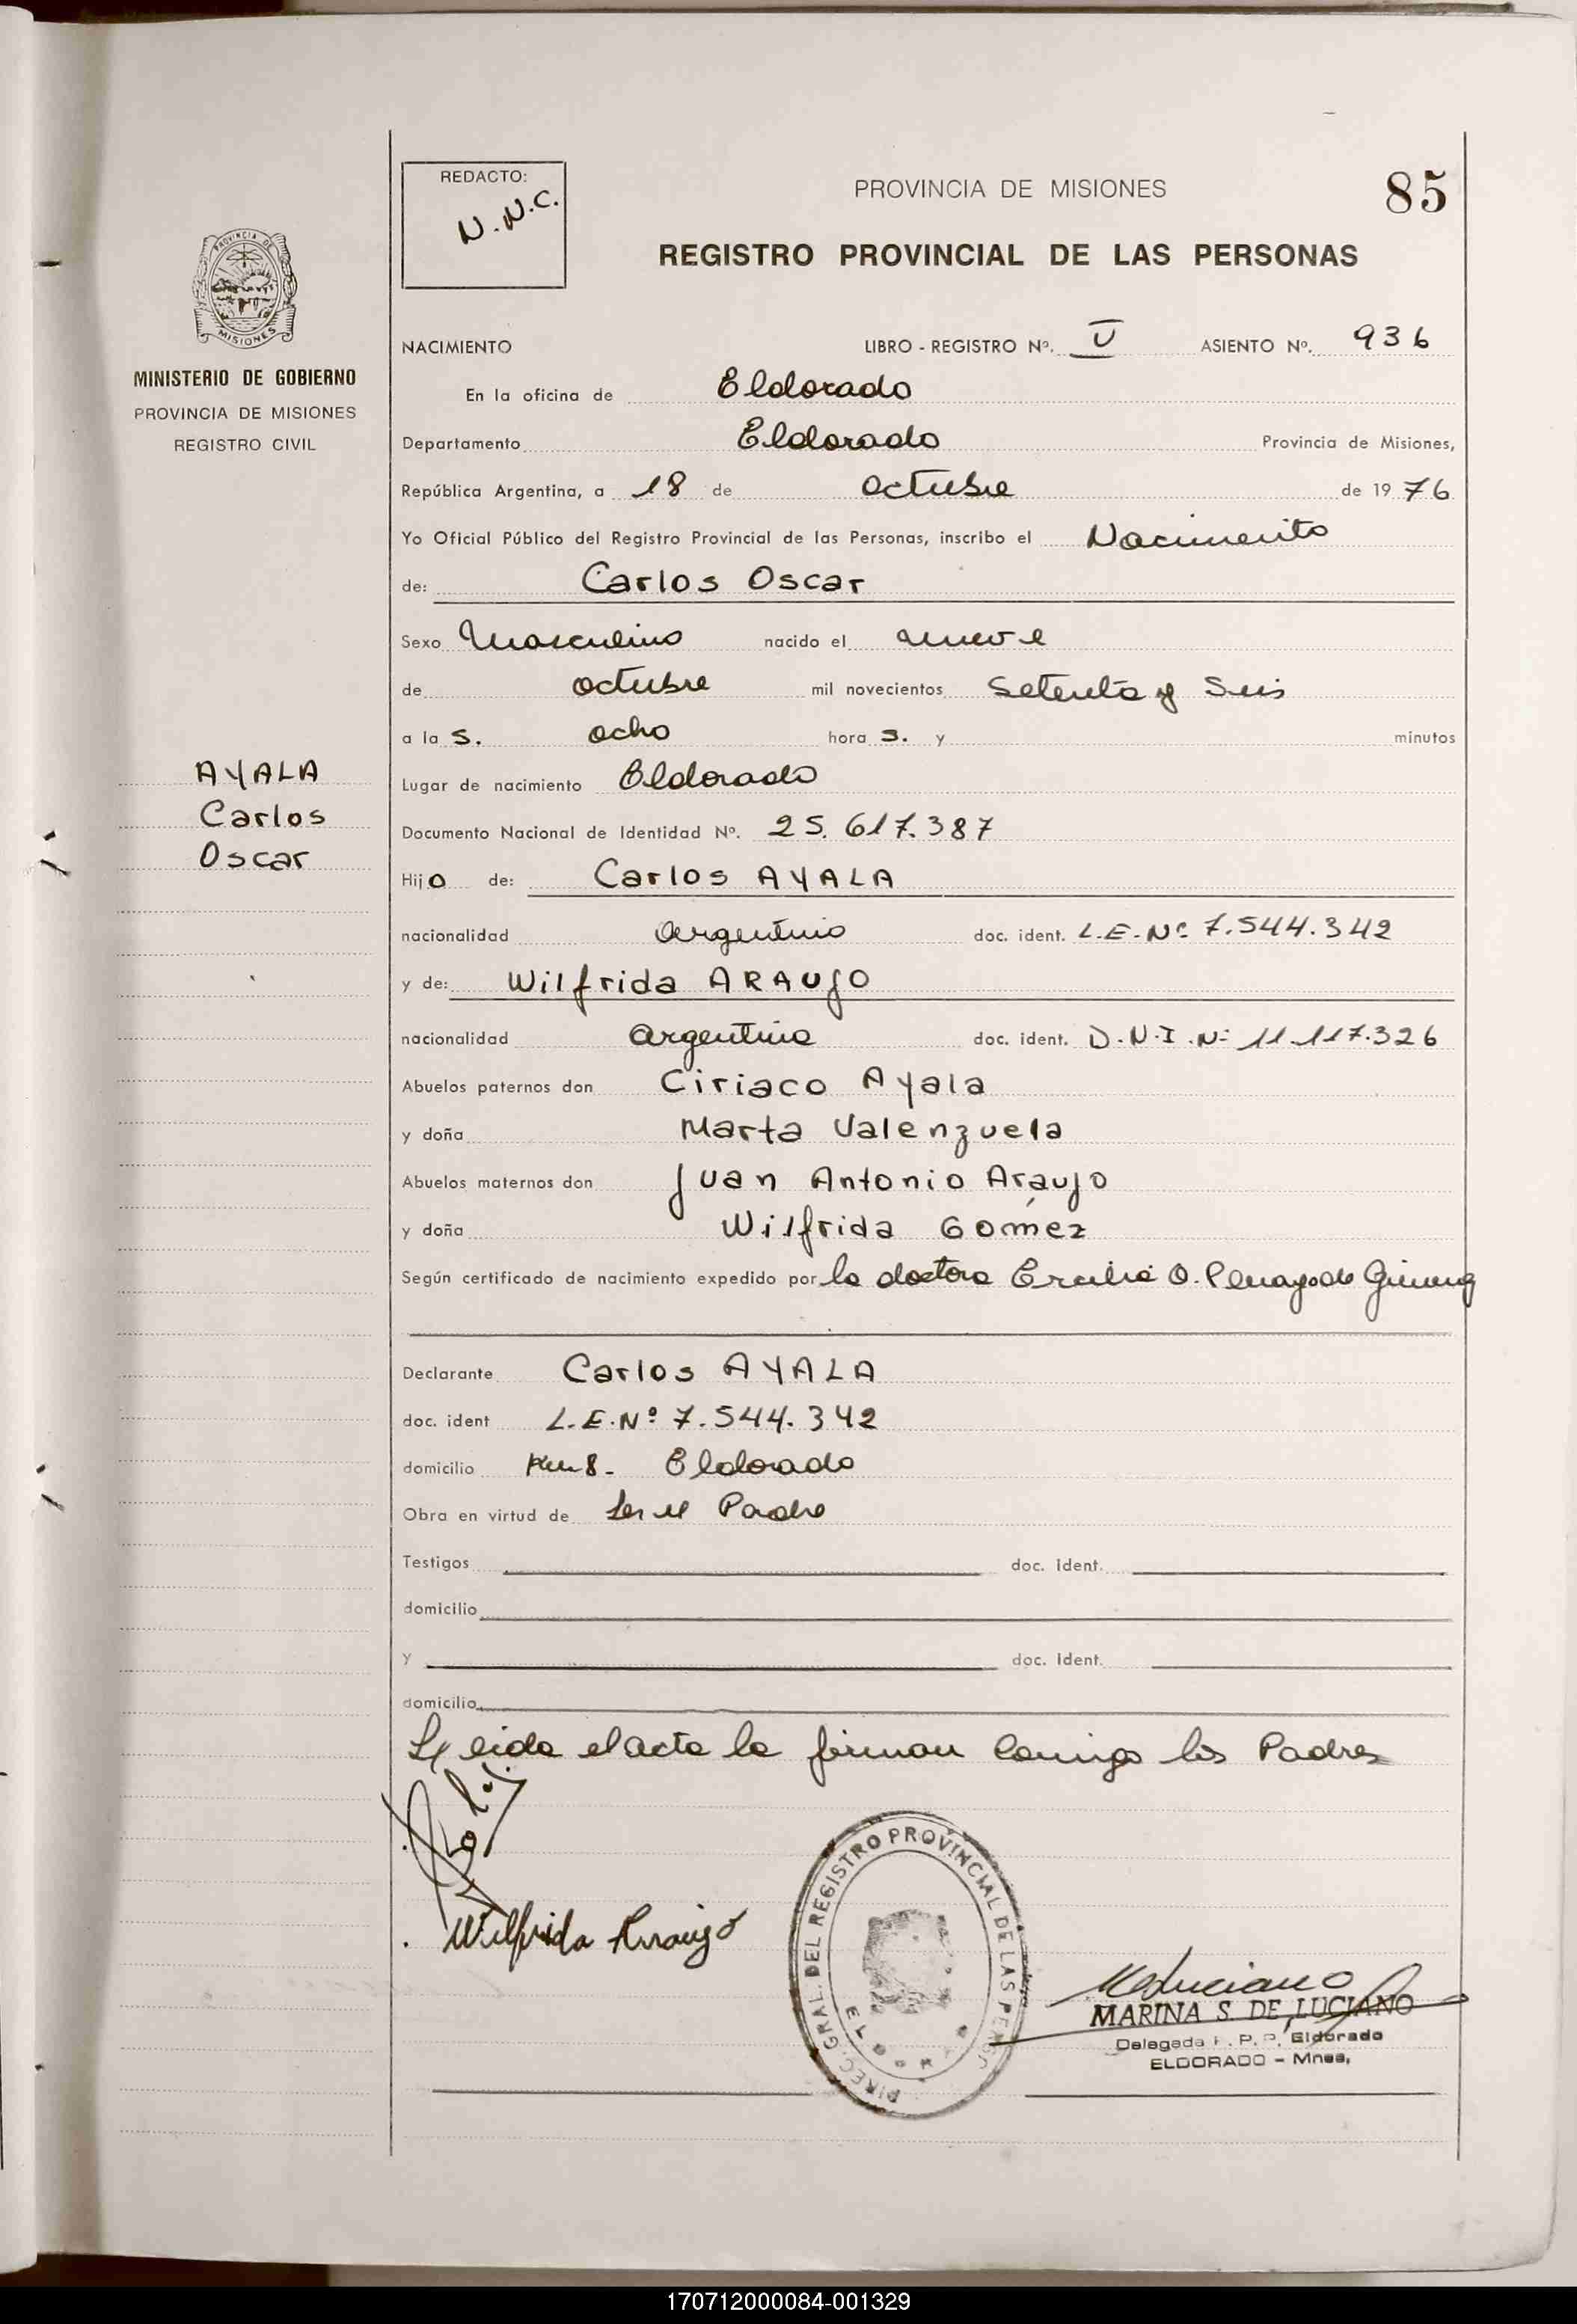 REDACTO:
N.N.C.
PROVINCIA DE MISIONES
85
REGISTRO PROVINCIAL DE LAS PERSONAS
PROVINCIA DE
MISIONES
MINISTERIO DE GOBIERNO
PROVINCIA DE MISIONES
REGISTRO CIVIL
NACIMIENTO LIBRO - REGISTRO Nº. ASIENTO Nº. 936
En la oficina de Eldorado
Departamento Eldorado Provincia de Misiones,
República Argentina, a 18 de octubre de 19 76
Yo Oficial Público del Registro Provincial de las Personas, inscribo el Nacimiento
de: Carlos Oscar
Sexo Masculino nacido el nueve
de octubre mil novecientos Setenta y Seis
a la s. ocho hora s. y minutos
AYALA
Carlos
Oscar
Lugar de nacimiento Eldorado
Documento Nacional de Identidad Nº. 25.617.387
Hijo de: Carlos AYALA
nacionalidad argentino doc. ident. L.E.Nº 7.544.342
y de: Wilfrida ARAUJO
nacionalidad argentina doc. ident. D.N.I.Nº 11.117.326
Abuelos paternos don Ciriaco Ayala
y doña Marta Valenzuela
Abuelos maternos don Juan Antonio Araujo
y doña Wilfrida Gómez
Según certificado de nacimiento expedido por la doctora O.
Declarante Carlos AYALA
doc. ident L.E.Nº 7.544.342
domicilio Km 8. Eldorado
Obra en virtud de Ser el Padre
Testigos doc. ident.
domicilio
y doc. ident.
domicilio
Leida el acta la firman conmigo los Padres
Wilfrida Araujo
DIREC. GRAL. DEL REGISTRO PROVINCIAL DE LAS PERS.
MARINA S. DE LUCIANO
Delegada R. P. P. Eldorado
ELDORADO - Mnes,
170712000084-001329